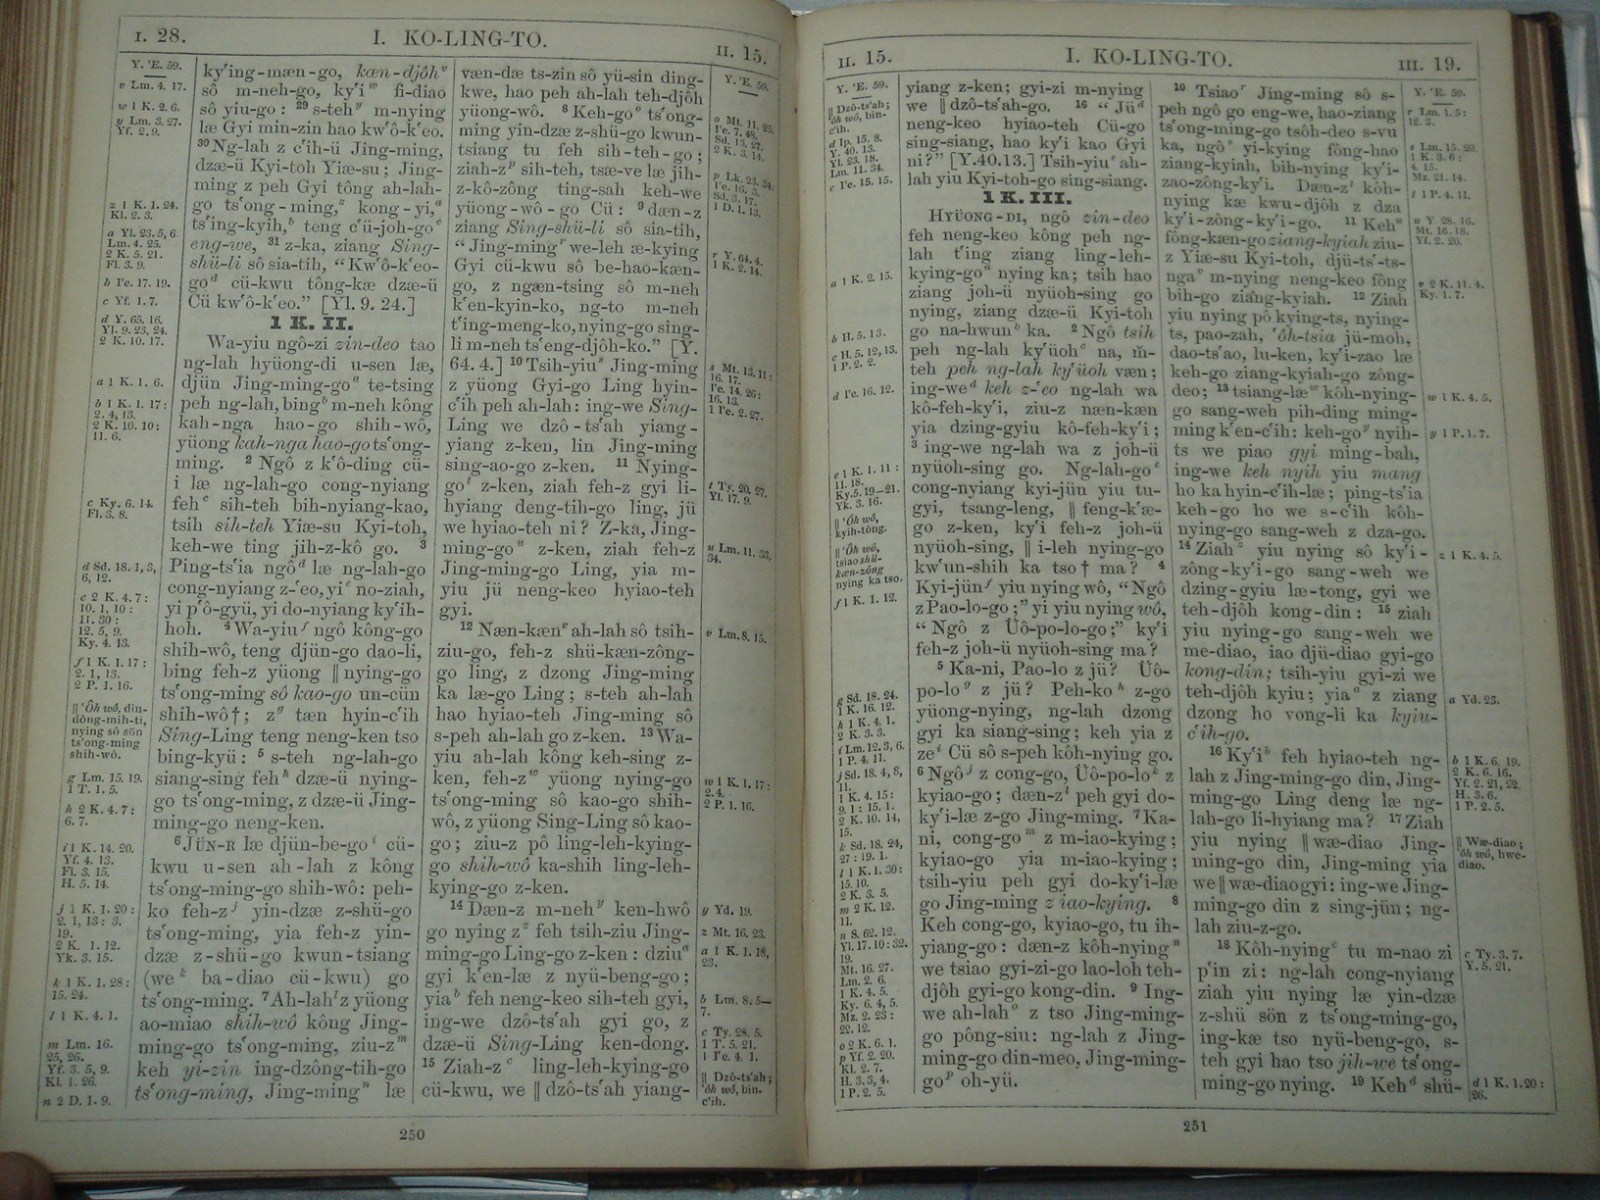 I. 28.
I. KO-LING-TO.
II. 15.
Y. 'E. 59.
v Lm. 4. 17.
w 1 K. 2. 6.
y Lm. 3. 27.
Yf. 2. 9.
z 1 K. 1. 24.
Kl. 2. 3.
a Yl. 23. 5, 6
Lm. 4. 25.
2 K. 5. 21.
Fl. 3. 9.
b Pe. 17. 19.
c Yf. 1. 7.
d Y. 65. 16.
Yl. 9. 23, 24.
2 K. 10. 17.
a 1 K. 1. 6.
b 1 K. 1. 17:
2. 4, 13.
2 K. 10. 10:
11. 6.
c Ky. 6. 14.
Fl. 3. 8.
d Sd. 18. 1, 3,
6, 12.
e 2 K. 4. 7:
10. 1, 10:
11. 30:
12. 5, 9.
Ky. 4. 13.
f 1 K. 1. 17:
2. 1, 13.
2 P. 1. 16.
‖ 'Ôh wô, din-
dông-mih-ti,
nying sô sön
ts'ong-ming
shih-wô.
g Lm. 15. 19.
1 T. 1. 5.
h 2 K. 4. 7:
6. 7.
i 1 K. 14. 20.
Yf. 4. 13.
Fl. 3. 15.
H. 5. 14.
j 1 K. 1. 20:
2. 1, 13: 3.
19.
2 K. 1. 12.
Yk. 3. 15.
k 1 K. 1. 28:
15. 24.
l 1 K. 4. 1.
m Lm. 16.
25, 26.
Yf. 3. 5, 9.
Kl. 1. 26.
n 2 D. 1. 9.
ky'ing-mæn-go, kæn-djôh v
sô m-neh-go, ky'i w fi-diao
sô yiu-go: 29 s-teh y m-nying
læ Gyi min-zin hao kw'ô-k'eo.
30 Ng-lah z c'ih-ü Jing-ming,
dzæ-ü Kyi-toh Yiæ-su; Jing-
ming z peh Gyi tông ah-lah-
go ts'ong-ming, z kong-yi, a
ts'ing-kyih, b teng c'ü-joh-go c
eng-we, 31 z-ka, ziang Sing-
shü-li sô sia-tih, “Kw'ô-k'eo-
go d cü-kwu tông-kæ dzæ-ü
Cü kw'ô-k'eo.” [Yl. 9. 24.]
1 K. II.
Wa-yiu ngô-zi zin-deo tao
ng-lah hyüong-di u-sen læ,
djün Jing-ming-go a te-tsing
peh ng-lah, bing b m-neh kông
kah-nga hao-go shih-wô,
yüong kah-nga hao-go ts'ong-
ming. 2 Ngô z k'ô-ding cü-
i læ ng-lah-go cong-nyiang
feh c sih-teh bih-nyiang-kao,
tsih sih-teh Yiæ-su Kyi-toh,
keh-we ting jih-z-kô go. 3
Ping-ts'ia ngô d læ ng-lah-go
cong-nyiang z-'eo, yi e no-ziah,
yi p'ô-gyü, yi do-nyiang ky'ih-
hoh. 4 Wa-yiu f ngô kông-go
shih-wô, teng djün-go dao-li,
bing feh-z yüong ‖ nying-go
ts'ong-ming sô kao-go un-cün
shih-wô†; z g tæn hyin-c'ih
Sing-Ling teng neng-ken tso
bing-kyü: 5 s-teh ng-lah-go
siang-sing feh h dzæ-ü nying-
go ts'ong-ming, z dzæ-ü Jing-
ming-go neng-ken.
6 Jün-r læ djün-be-go i cü-
kwu u-sen ah-lah z kông
ts'ong-ming-go shih-wô: peh-
ko feh-z j yin-dzæ z-shü-go
ts'ong-ming, yia feh-z yin-
dzæ z-shü-go kwun-tsiang
(we k ba-diao cü-kwu) go
ts'ong-ming. 7 Ah-lah l z yüong
ao-miao shih-wô kông Jing-
ming-go ts'ong-ming, ziu-z m
keh yi-zin ing-dzông-tih-go
ts'ong-ming, Jing-ming n læ
væn-dæ ts-zin sô yü-sin ding-
kwe, hao peh ah-lah teh-djôh
yüong-wô. 8 Keh-go o ts'ong-
ming yin-dzæ z-shü-go kwun-
tsiang tu feh sih-teh-go;
ziah-z p sih-teh, tsæ-ve læ jih-
z-kô-zông ting-sah keh-we
yüong-wô-go Cü: 9 dæn-z
ziang Sing-shü-li sô sia-tih,
“Jing-ming r we-leh æ-kying
Gyi cü-kwu sô be-hao-kæn-
go, z ngæn-tsing sô m-neh
k'en-kyin-ko, ng-to m-neh
t'ing-meng-ko, nying-go sing-
li m-neh ts'eng-djôh-ko.” [Y.
64. 4.] 10 Tsih-yiu s Jing-ming
z yüong Gyi-go Ling hyin-
c'ih peh ah-lah: ing-we Sing-
Ling we dzô-ts'ah yiang-
yiang z-ken, lin Jing-ming
sing-ao-go z-ken. 11 Nying-
go t z-ken, ziah feh-z gyi li-
hyiang deng-tih-go ling, jü
we hyiao-teh ni? Z-ka, Jing-
ming-go u z-ken, ziah feh-z
Jing-ming-go Ling, yia m-
yiu jü neng-keo hyiao-teh
gyi.
12 Næn-kæn v ah-lah sô tsih-
ziu-go, feh-z shü-kæn-zông-
go ling, z dzong Jing-ming
ka læ-go Ling; s-teh ah-lah
hao hyiao-teh Jing-ming sô
s-peh ah-lah go z-ken. 13 Wa-
yiu ah-lah kông keh-sing z-
ken, feh-z w yüong nying-go
ts'ong-ming sô kao-go shih-
wô, z yüong Sing-Ling sô kao-
go; ziu-z pô ling-leh-kying-
go shih-wô ka-shih ling-leh-
kying-go z-ken.
14 Dæn-z m-neh y ken-hwô
go nying z z feh tsih-ziu Jing-
ming-go Ling-go z-ken: dziu a
gyi k'en-læ z nyü-beng-go;
yia b feh neng-keo sih-teh gyi,
ing-we dzô-ts'ah gyi go, z
dzæ-ü Sing-Ling ken-dong.
15 Ziah-z c ling-leh-kying-go
cü-kwu, we ‖ dzô-ts'ah yiang-
Y. 'E. 59.
o Mt. 11. 25.
Pe. 7. 48.
Sd. 13. 27.
2 K. 3. 14.
p Lk. 23. 34.
Pe. 16. 3.
Sd. 3. 17.
1 D. 1. 13.
r Y. 64. 4.
1 K. 2. 14.
s Mt. 13. 11:
16. 17.
Pe. 14. 26:
16. 13.
1 Pe. 2. 27.
t Ty. 20. 27.
Yl. 17. 9.
u Lm. 11. 33,
34.
v Lm. 8. 15.
w 1 K. 1. 17:
2. 4.
2 P. 1. 16.
y Yd. 19.
z Mt. 16. 23.
a 1 K. 1. 18,
23.
b Lm. 8. 5—
7.
c Ty. 28. 5.
1 T. 5. 21.
1 Pe. 4. 1.
‖ Dzô-ts'ah;
'ôh wô, bin-
c'ih.
250
II. 15.
I. KO-LING-TO.
III. 19.
Y. 'E. 59.
‖ Dzô-ts'ah;
'ôh wô, bin-
c'ih.
d Ip. 15. 8.
Y. 40. 13.
Yl. 23. 18.
Lm. 11. 34.
e Pe. 15. 15.
a 1 K. 2. 15.
b H. 5. 13.
c H. 5. 12, 13.
1 P. 2. 2.
d Pe. 16. 12.
e 1 K. 1. 11:
11. 18.
Ky. 5. 19—21.
Yk. 3. 16.
‖ 'Ôh wô,
kyih-tông.
‖ 'Ôh wô,
tsiao shü-
kæn-zông
nying ka tso.
f 1 K. 1. 12.
g Sd. 18. 24.
1 K. 16. 12.
h 1 K. 4. 1.
2 K. 3. 3.
i Lm. 12. 3, 6.
1 P. 4. 11.
j Sd. 18. 4, 8,
11.
1 K. 4. 15:
9. 1: 15. 1.
2 K. 10. 14,
15.
k Sd. 18. 24,
27: 19. 1.
l 1 K. 1. 30:
15. 10.
2 K. 3. 5.
m 2 K. 12.
11.
n S. 62. 12.
Yl. 17. 10: 32.
19.
Mt. 16. 27.
Lm. 2. 6.
1 K. 4. 5.
Ky. 6. 4, 5.
Mz. 2. 23:
22. 12.
o 2 K. 6. 1.
p Yf. 2. 20.
Kl. 2. 7.
H. 3. 3, 4.
1 P. 2. 5.
yiang z-ken; gyi-zi m-nying
we ‖ dzô-ts'ah-go. 16 “Jü d
neng-keo hyiao-teh Cü-go
sing-siang, hao ky'i kao Gyi
ni?” [Y. 40. 13.] Tsih-yiu e ah-
lah yiu Kyi-toh-go sing-siang.
1 K. III.
Hyüong-di, ngô zin-deo
feh neng-keo kông peh ng-
lah t'ing ziang ling-leh-
kying-go a nying ka; tsih hao
ziang joh-ü nyüoh-sing go
nying, ziang dzæ-ü Kyi-toh
go na-hwun b ka. 2 Ngô tsih
peh ng-lah ky'üoh c na, m̄-
teh peh ng-lah ky'üoh væn;
ing-we d keh z-'eo ng-lah wa
kô-feh-ky'i, ziu-z næn-kæn
yia dzing-gyiu kô-feh-ky'i;
3 ing-we ng-lah wa z joh-ü
nyüoh-sing go. Ng-lah-go e
cong-nyiang kyi-jün yiu tu-
gyi, tsang-leng, ‖ feng-k'æ-
go z-ken, ky'i feh-z joh-ü
nyüoh-sing, ‖ i-leh nying-go
kw'un-shih ka tso† ma? 4
Kyi-jün f yiu nying wô, “Ngô
z Pao-lo-go;” yi yiu nying wô,
“Ngô z Üô-po-lo-go;” ky'i
feh-z joh-ü nyüoh-sing ma?
5 Ka-ni, Pao-lo z jü? Üô-
po-lo g z jü? Peh-ko h z-go
yüong-nying, ng-lah dzong
gyi ka siang-sing; keh yia z
ze i Cü sô s-peh kôh-nying go.
6 Ngô j z cong-go, Üô-po-lo k z
kyiao-go; dæn-z l peh gyi do-
ky'i-læ z-go Jing-ming. 7 Ka-
ni, cong-go m z m-iao-kying;
kyiao-go yia m-iao-kying;
tsih-yiu peh gyi do-ky'i-læ
go Jing-ming z iao-kying. 8
Keh cong-go, kyiao-go, tu ih-
yiang-go: dæn-z kôh-nying n
we tsiao gyi-zi-go lao-loh teh-
djôh gyi-go kong-din. 9 Ing-
we ah-lah o z tso Jing-ming-
go pông-siu: ng-lah z Jing-
ming-go din-meo, Jing-ming-
go p oh-yü.
10 Tsiao r Jing-ming sô s-
peh ngô go eng-we, hao-ziang
ts'ong-ming-go tsôh-deo s-vu
ka, ngô s yi-kying fông-hao
ziang-kyiah, bih-nying ky'i-
zao-zông-ky'i. Dæn-z t kôh-
nying kæ kwu-djôh z dza
ky'i-zông-ky'i-go. 11 Keh u
fông-kæn-go ziang-kyiah ziu-
z Yiæ-su Kyi-toh, djü-ts'-ts-
nga v m-nying neng-keo fông
bih-go ziang-kyiah. 12 Ziah
yiu nying pô kying-ts, nying-
ts, pao-zah, 'ôh-tsia jü-moh,
dao-ts'ao, lu-ken, ky'i-zao læ
keh-go ziang-kyiah-go zông-
deo; 13 tsiang-læ w kôh-nying-
go sang-weh pih-ding ming-
ming k'en-c'ih: keh-go y nyih-
ts we piao gyi ming-bah,
ing-we keh nyih yiu mang
ho ka hyin-c'ih-læ; ping-ts'ia
keh-go ho we s-c'ih kôh-
nying-go sang-weh z dza-go.
14 Ziah z yiu nying sô ky'i-
zông-ky'i-go sang-weh we
dzing-gyiu læ-tong, gyi we
teh-djôh kong-din: 15 ziah
yiu nying-go sang-weh we
me-diao, iao djü-diao gyi-go
kong-din; tsih-yiu gyi-zi we
teh-djôh kyiu; yia a z ziang
dzong ho vong-li ka kyiu-
c'ih-go.
16 Ky'i b feh hyiao-teh ng-
lah z Jing-ming-go din, Jing-
ming-go Ling deng læ ng-
lah-go li-hyiang ma? 17 Ziah
yiu nying ‖ wæ-diao Jing-
ming-go din, Jing-ming yia
we ‖ wæ-diao gyi: ing-we Jing-
ming-go din z sing-jün; ng-
lah ziu-z-go.
18 Kôh-nying c tu m-nao zi
p'in zi: ng-lah cong-nyiang
ziah yiu nying læ yin-dzæ
z-shü sön z ts'ong-ming-go,
ing-kæ tso nyü-beng-go, s-
teh gyi hao tso jih-we ts'ong-
ming-go nying. 19 Keh d shü-
Y. 'E. 59.
r Lm. 1. 5:
12. 3.
s Lm. 15. 20.
1 K. 3. 6:
4. 15.
Mz. 21. 14.
t 1 P. 4. 11.
u Y. 28. 16.
Mt. 16. 18.
Yf. 2. 20.
v 2 K. 11. 4.
Ky. 1. 7.
w 1 K. 4. 5.
y 1 P. 1. 7.
z 1 K. 4. 5.
a Yd. 23.
b 1 K. 6. 19.
2 K. 6. 16.
Yf. 2. 21, 22.
H. 3. 6.
1 P. 2. 5.
‖ Wæ-diao;
'ôh wô, hwe-
diao.
c Ty. 3. 7.
Y. 5. 21.
d 1 K. 1. 20:
26.
251